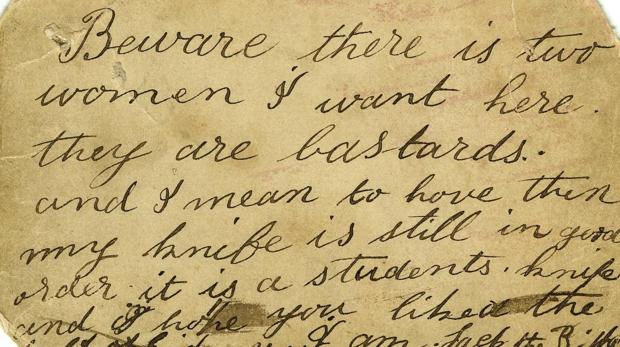 Beware there is two
women I want here.
they are bastards.
and I mean to have them
my knife is still in good
order it is a students. knife
and I hope you liked the
I am Jack the Ripper